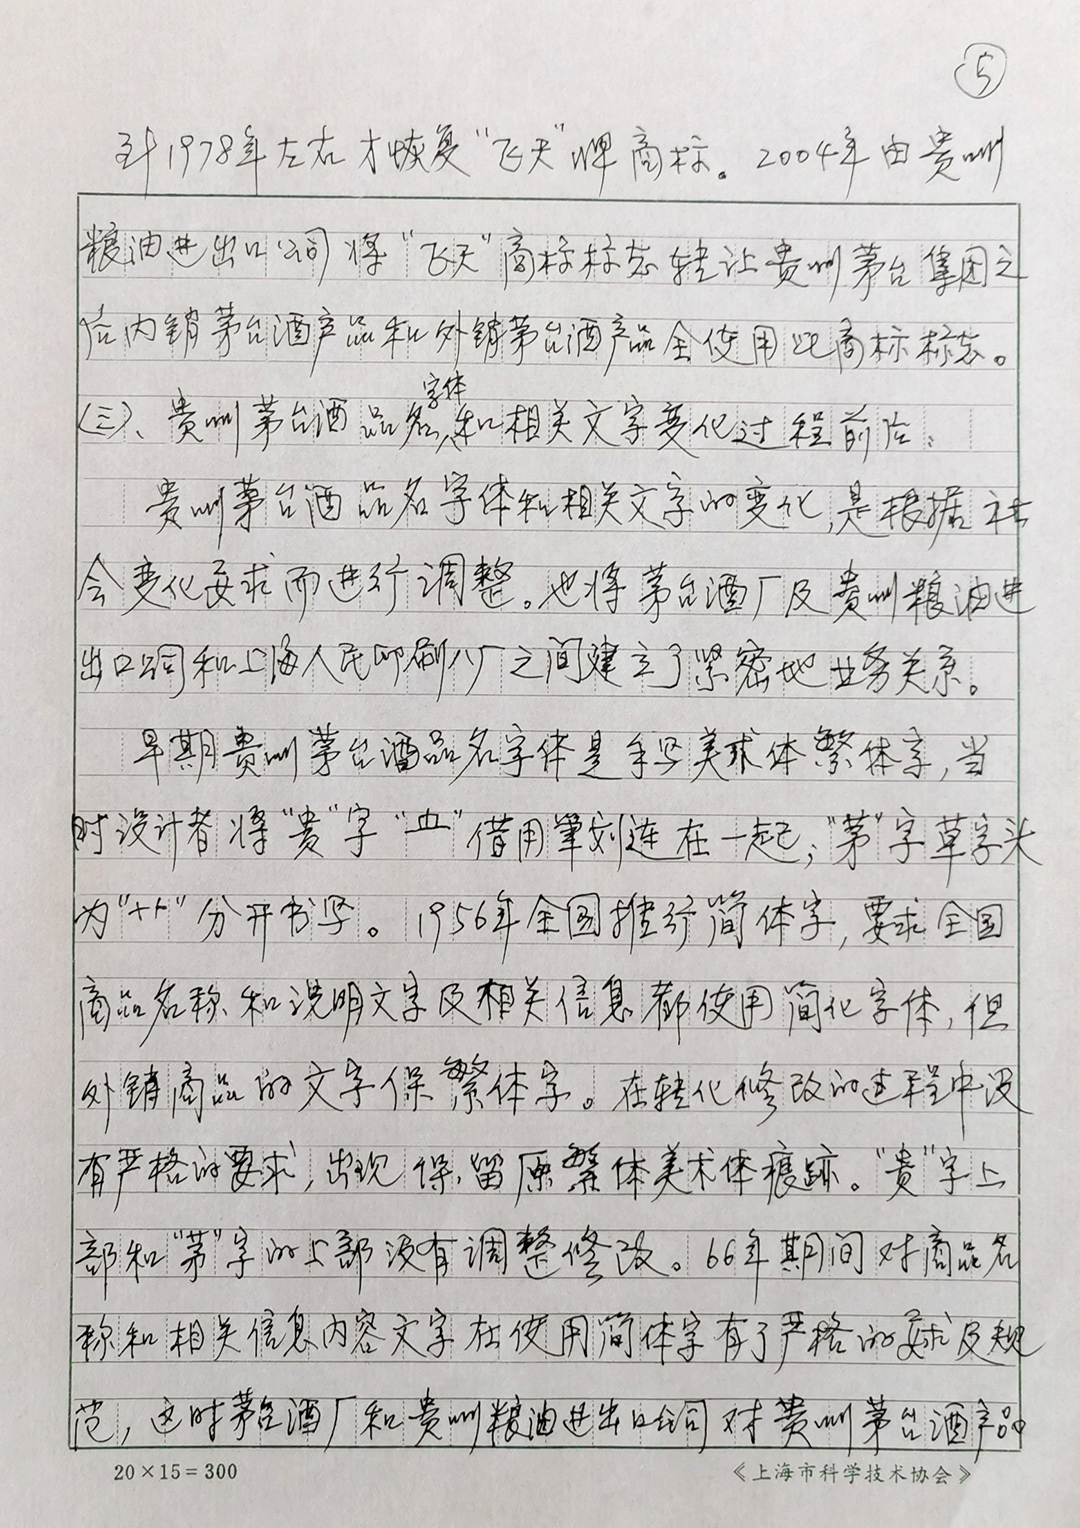 ⑤
到1978年左右才恢复“飞天”牌商标。2004年由贵州
粮油进出口公司将“飞天”商标标志转让贵州茅台集团之
后内销茅台酒产品和外销茅台酒产品全使用此商标标志。
字体
(三)、贵州茅台酒品名、和相关文字变化过程前后:
贵州茅台酒品名字体和相关文字的变化,是根据社
会变化要求而进行调整。也将茅台酒厂及贵州粮油进
出口公司和上海人民印刷八厂之间建立了紧密地业务关系。
早期贵州茅台酒品名字体是手写美术体繁体字,当
时设计者将“贵”字“皿”借用笔划连在一起;“茅”字草字头
为“十十”分开书写。1956年全国推行简体字,要求全国
商品名称和说明文字及相关信息都使用简化字体,但
外销商品的文字保繁体字。在转化修改的过程中没
有严格的要求,出现保留原繁体美术体痕跡。“贵”字上
部和“茅”字的上部没有调整修改。66年期间对商品名
称和相关信息内容文字在使用简体字有了严格的要求及规
范,这时茅台酒厂和贵州粮油进出口公司对贵州茅台酒产品
20×15=300
《上海市科学技术协会》